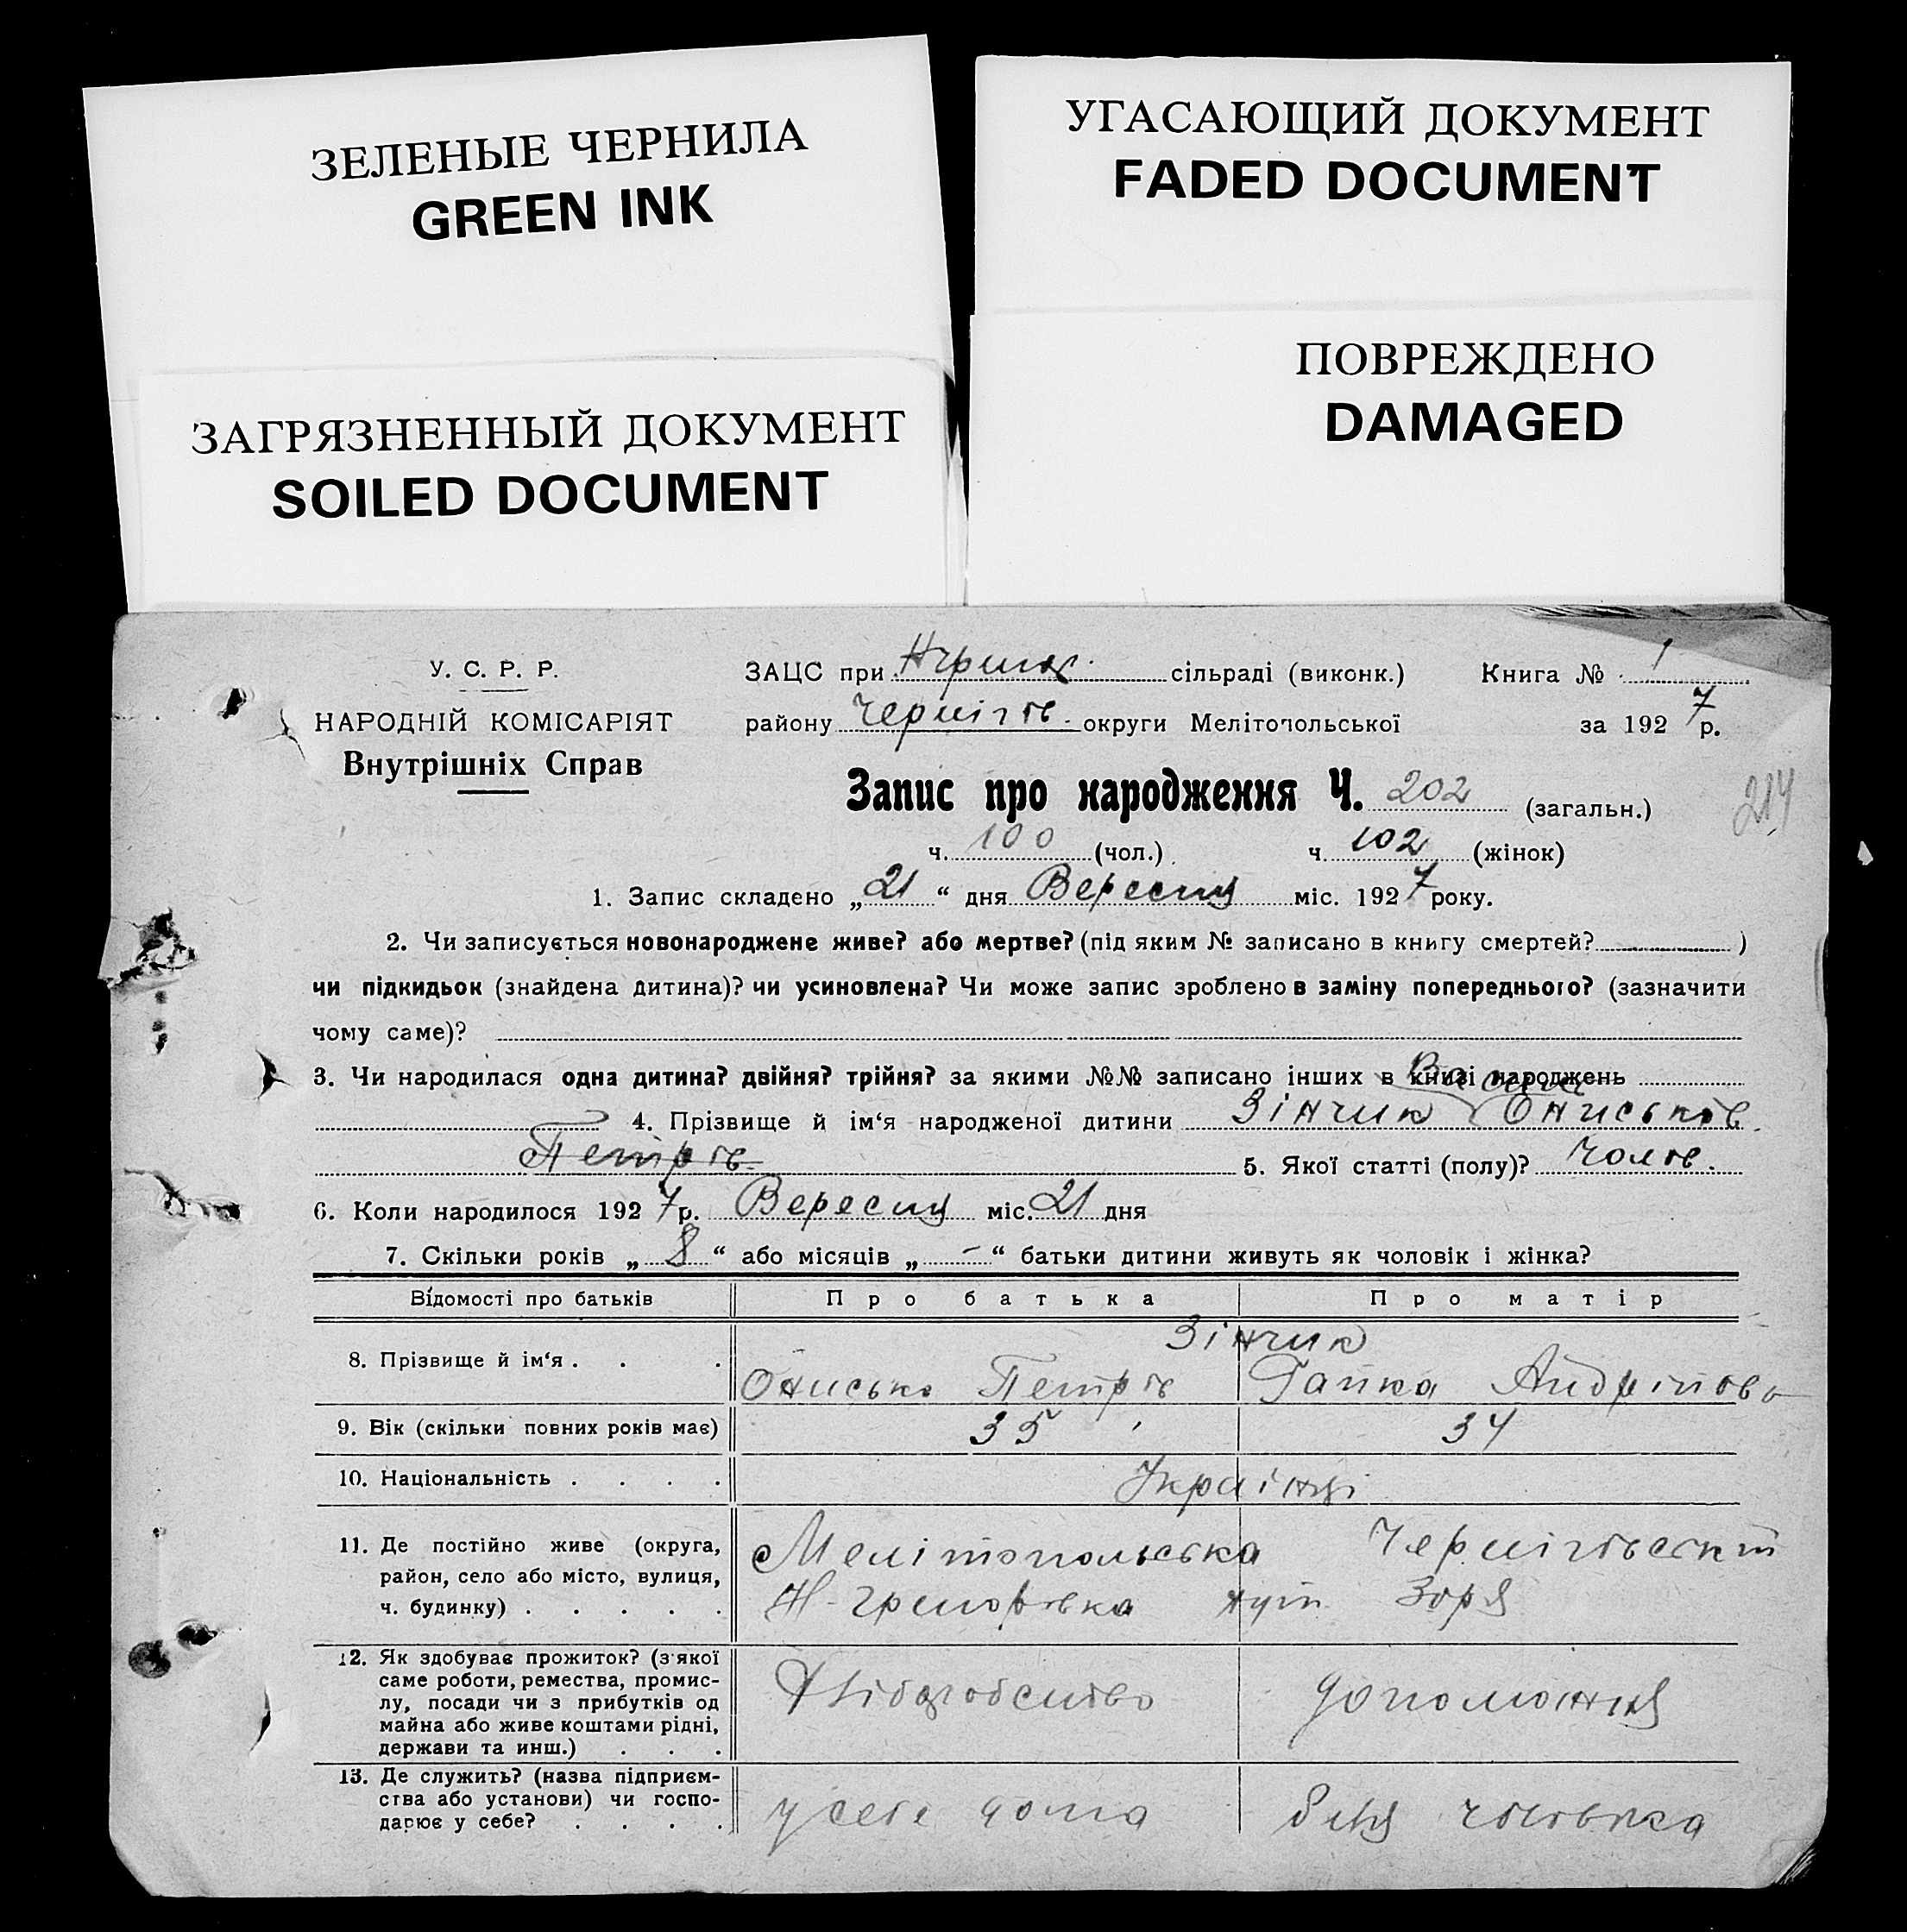 ЗЕЛЕНЫЕ ЧЕРНИЛА
GREEN INK
УГАСАЮЩИЙ ДОКУМЕНТ
FADED DOCUMENT
ЗАГРЯЗНЕННЫЙ ДОКУМЕНТ
SOILED DOCUMENT
ПОВРЕЖДЕНО
DAMAGED
У. С. Р. Р.
НАРОДНІЙ КОМІСАРІЯТ
Внутрішніх Справ
ЗАЦС при сільраді (виконк.) Книга № 1
району Чернігів. округи Мелітопольської за 1927 р.
Запис про народження Ч. 202 (загальн.)
214
ч. 100 (чол.) ч. 102 (жінок)
1. Запис складено „21“ дня Вересня міс. 1927 року.
2. Чи записується новонароджене живе? або мертве? (під яким № записано в книгу смертей? )
чи підкидьок (знайдена дитина)? чи усиновлена? Чи може запис зроблено в заміну попереднього? (зазначити
чому саме)?
3. Чи народилася одна дитина? двійня? трійня? за якими №№ записано інших в книзі народжень
4. Прізвище й ім‘я народженої дитини Зінчик Ониськів
Петрів 5. Якої статті (полу)? Чолов.
6. Коли народилося 1927 р. Вересня міс. 21 дня
7. Скільки років „8“ або місяців „-“ батьки дитини живуть як чоловік і жінка?
Відомості про батьків Про батька Про матір
Зінчик
8. Прізвище й ім‘я . . . Онисько Петрів Ганка Андріївова
9. Вік (скільки повних років має) 35 34
10. Національність . . . . Українці
11. Де постійно живе (округа, район, село або місто, вулиця, ч. будинку) . . . . . Мелітопольська Чернігівський
Зоря
12. Як здобуває прожиток? (з якої саме роботи, ремества, промислу, посади чи з прибутків од майна або живе коштами рідні, держави та инш.) . . . Хліборобство допоможня
13. Де служить? (назва підприємства або установи) чи господарює у себе? . . . . у себе дома біля чоловіка